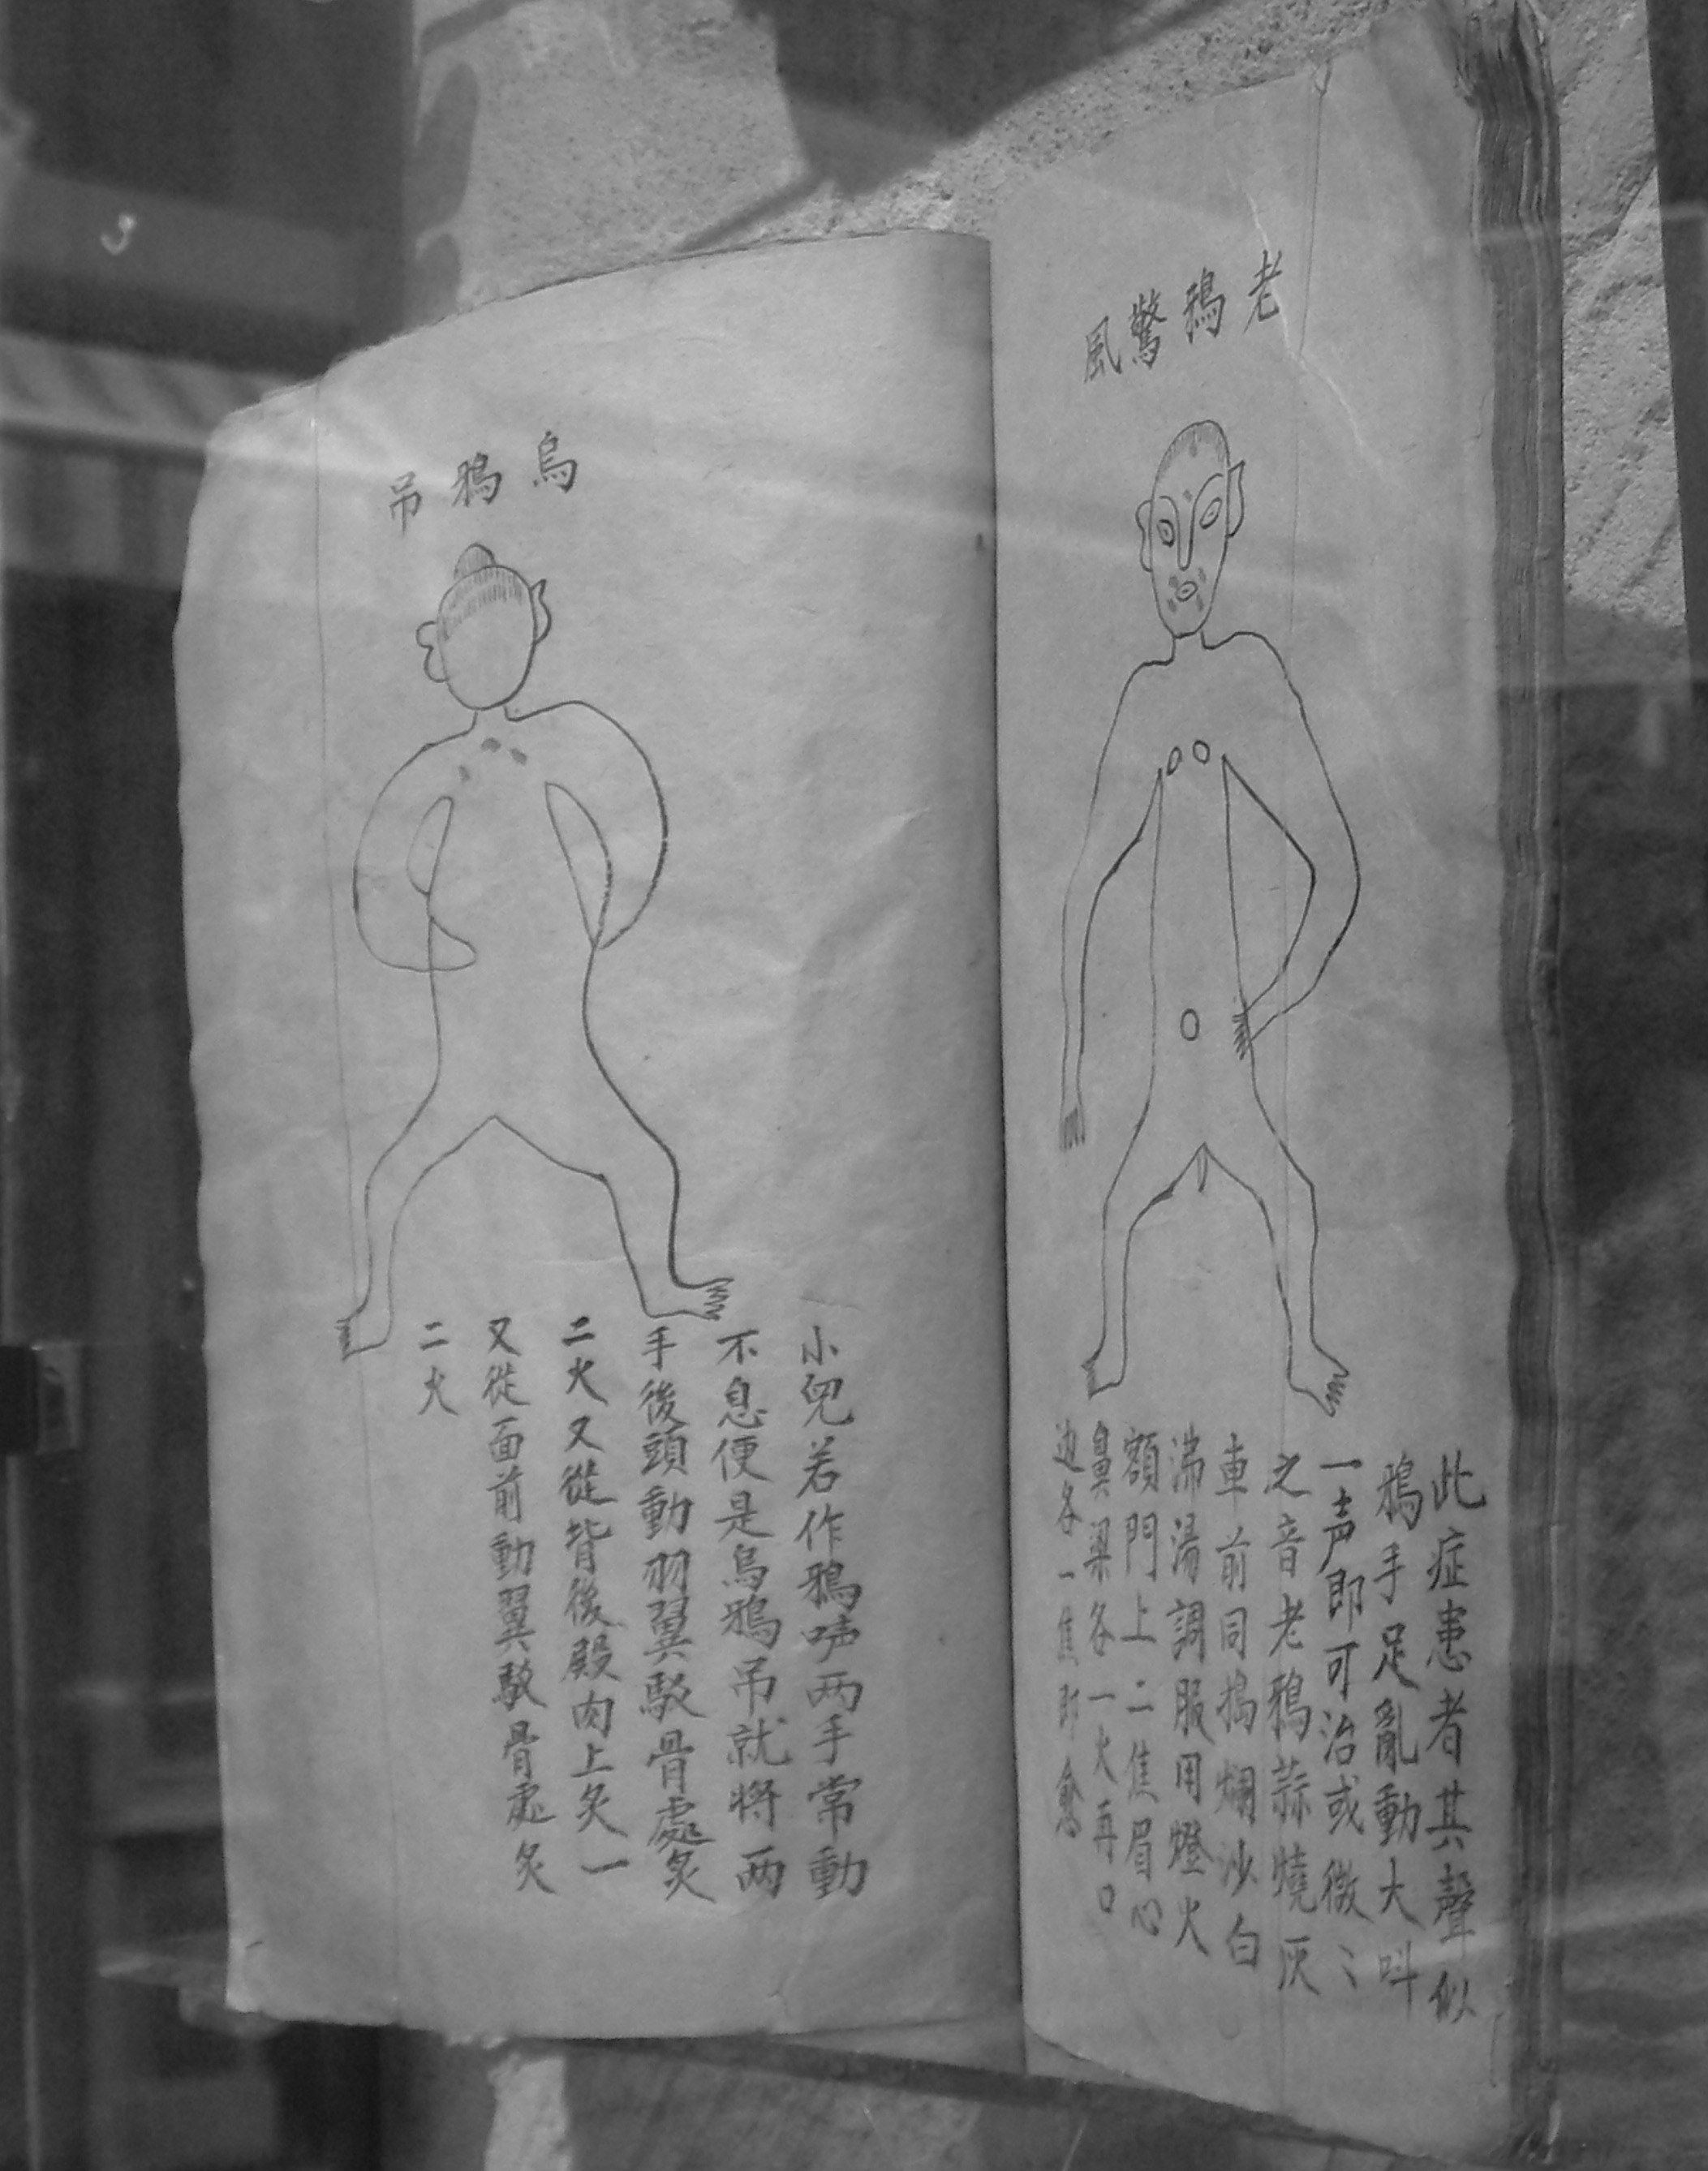 老鴉驚風
此症患者其聲似
鴉手足亂動大呌
一声即可治或微〻
之音老鴉蒜燒灰
車前同搗爛沙白
沸湯調服用燈火
額門上二焦眉心
鼻梁各一火再口
边各一焦即愈
烏鴉吊
小兒若作鴉啼两手常動
不息便是烏鴉吊就将两
手後頭動羽翼馭骨處炙
二火又從背後殿肉上炙一
又從面前動翼馭骨處炙
二火